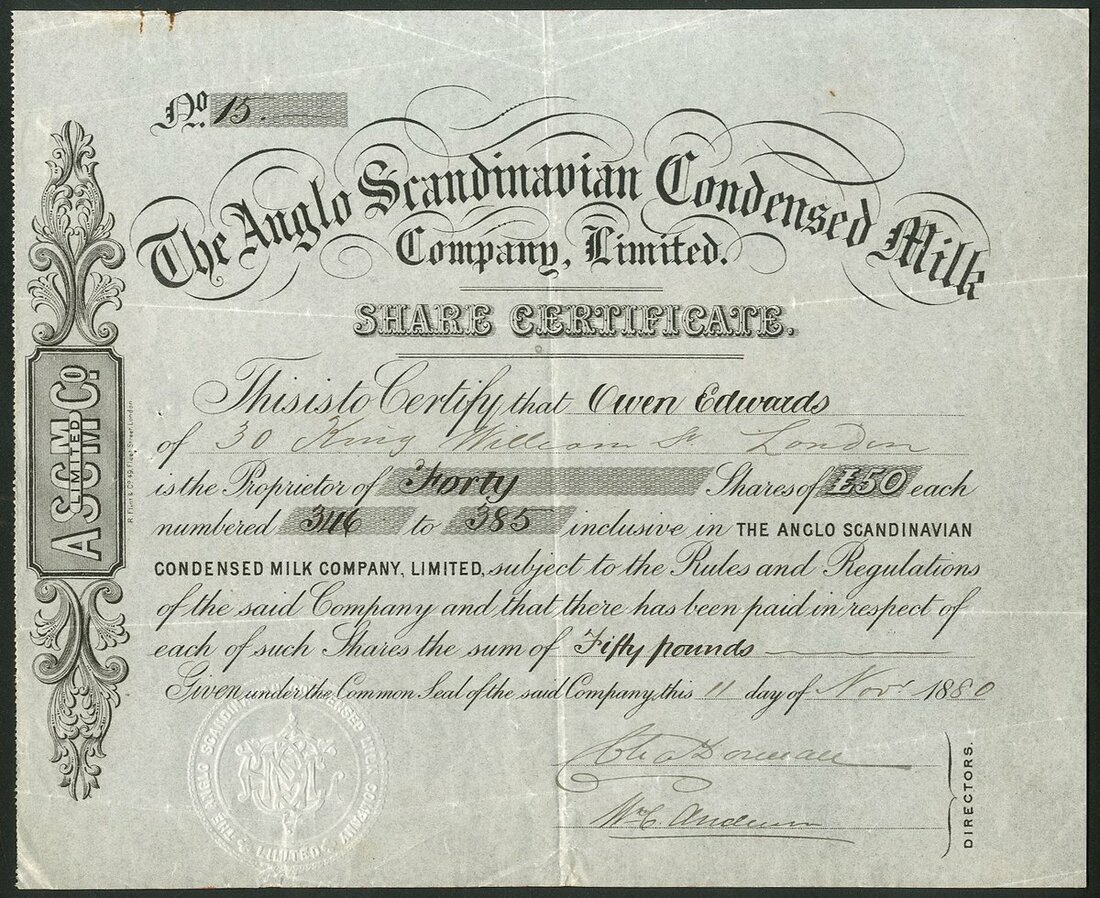 No. 15.
The Anglo Scandinavian Condensed Milk
Company, Limited.
SHARE CERTIFICATE.
This is to Certify that Owen Edwards
of 30 King William St London
is the Proprietor of Forty Shares of £50 each
numbered 346 to 385 inclusive in THE ANGLO SCANDINAVIAN
CONDENSED MILK COMPANY, LIMITED, subject to the Rules and Regulations
of the said Company and that there has been paid in respect of
each of such Shares the sum of Fifty pounds
Given under the Common Seal of the said Company, this 11 day of Novr 1880
Dorman
DIRECTORS.
A S C M Co.
LIMITED
R. Flint & Co 49, Fleet Street London
THE ANGLO SCANDINAVIAN CONDENSED MILK COMPANY LIMITED